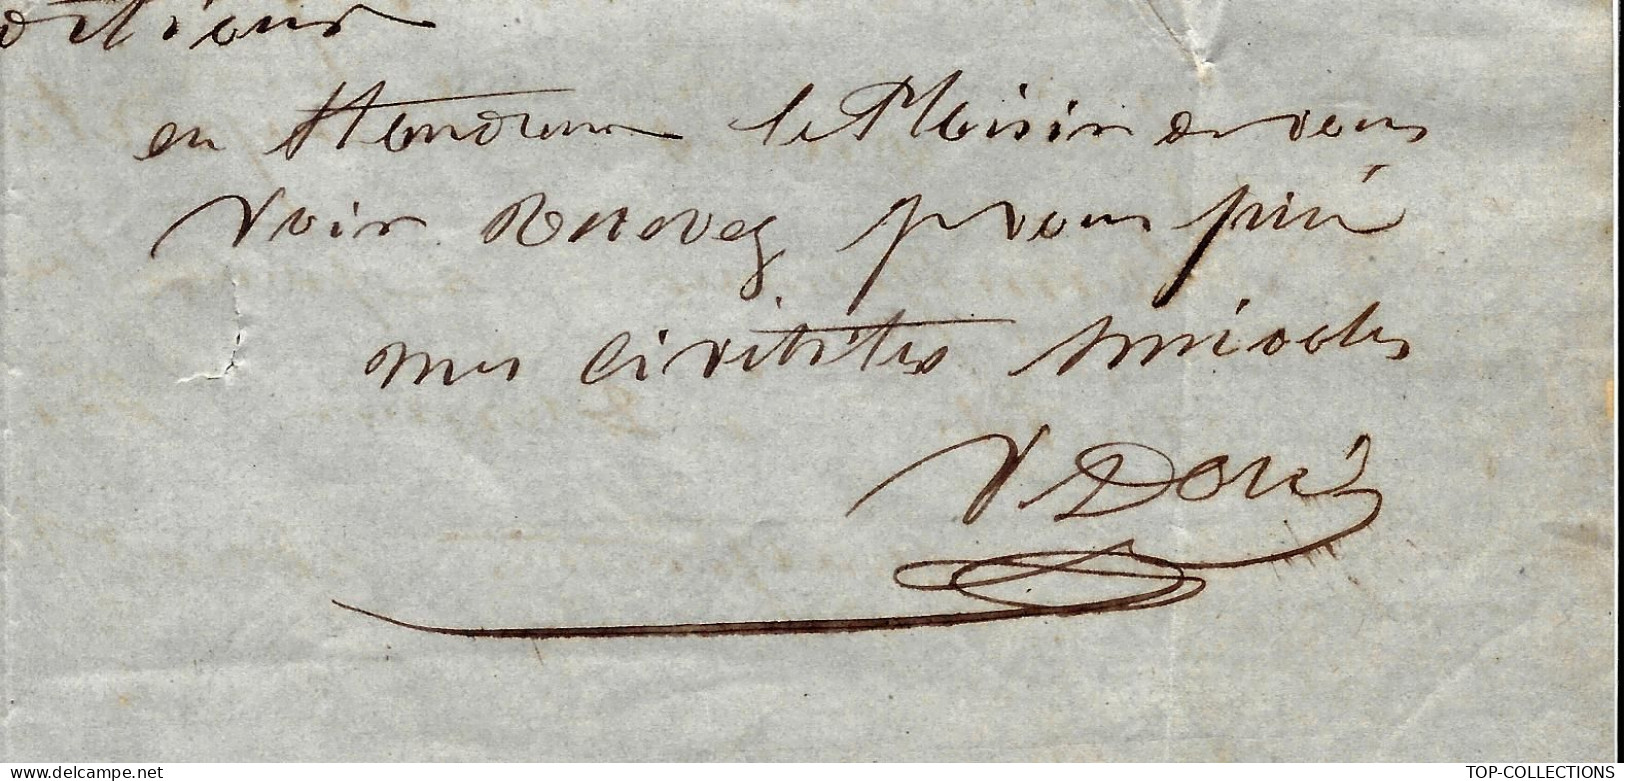 en attendant le Plaisir de vous
voir Recevez je vous prie
mes civilités amicales
V Doré
TOP-COLLECTIONS